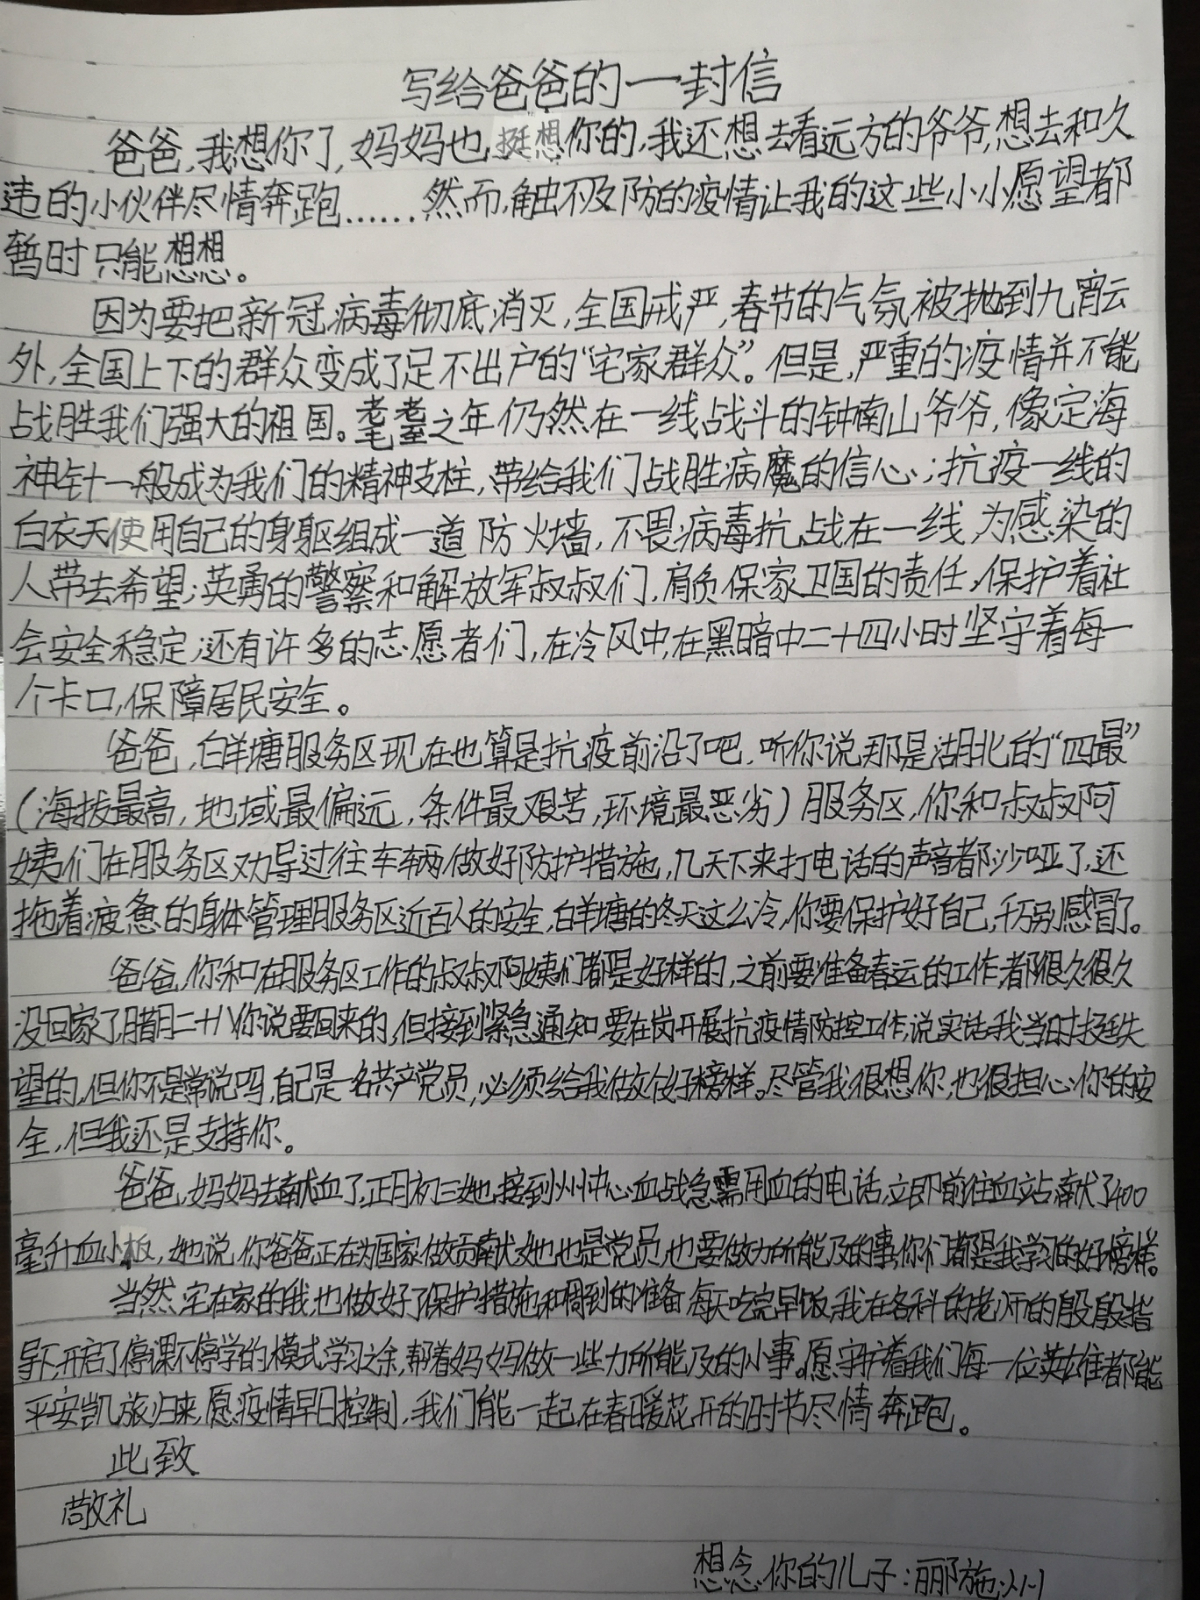 写给爸爸的一封信
爸爸,我想你了,妈妈也挺想你的,我还想去看远方的爷爷,想去和久
违的小伙伴尽情奔跑……然而,触不及防的疫情让我的这些小小愿望都
暂时只能想想。
因为要把新冠病毒彻底消灭,全国戒严,春节的气氛被抛到九霄云
外,全国上下的群众变成了足不出户的“宅家群众”。但是,严重的疫情并不能
战胜我们强大的祖国。耄耋之年仍然在一线战斗的钟南山爷爷,像定海
神针一般成为我们的精神支柱,带给我们战胜病魔的信心;抗疫一线的
白衣天使用自己的身躯组成一道防火墙,不畏病毒抗战在一线,为感染的
人带去希望;英勇的警察和解放军叔叔们,肩负保家卫国的责任,保护着社
会安全稳定;还有许多的志愿者们,在冷风中,在黑暗中二十四小时坚守着每一
个卡口,保障居民安全。
爸爸,白羊塘服务区现在也算是抗疫前沿了吧,听你说那是湖北的“四最”
(海拔最高,地域最偏远,条件最艰苦,环境最恶劣)服务区,你和叔叔阿
姨们在服务区劝导过往车辆做好防护措施,几天下来打电话的声音都沙哑了,还
拖着疲惫的身体管理服务区近百人的安全,白羊塘的冬天这么冷,你要保护好自己,千万别感冒了。
爸爸,你和在服务区工作的叔叔阿姨们都是好样的,之前要准备春运的工作,都很久很久
没回家了,腊月二十八你说要回来的,但接到紧急通知要在岗开展抗疫情防控工作,说实话,我当时挺失
望的,但你不是常说吗,自己是一名共产党员,必须给我做个好榜样。尽管我很想你,也很担心你的安
全,但我还是支持你。
爸爸,妈妈去献血了,正月初三她接到州中心血战急需用血的电话,立即前往血站献了400
毫升血小板,她说,你爸爸正在为国家做贡献,她也是党员,也要做力所能及的事,你们都是我学习的好榜样。
当然,宅在家的我也做好了保护措施和周到的准备,每天吃完早饭,我在各科的老师的殷殷指
导下,开启了停课不停学的模式,学习之余,帮着妈妈做一些力所能及的小事。愿守护着我们每一位英雄都能
平安凯旋归来,愿疫情早日控制,我们能一起在春暖花开的时节尽情奔跑。
此致
敬礼
想念你的儿子:郦施州